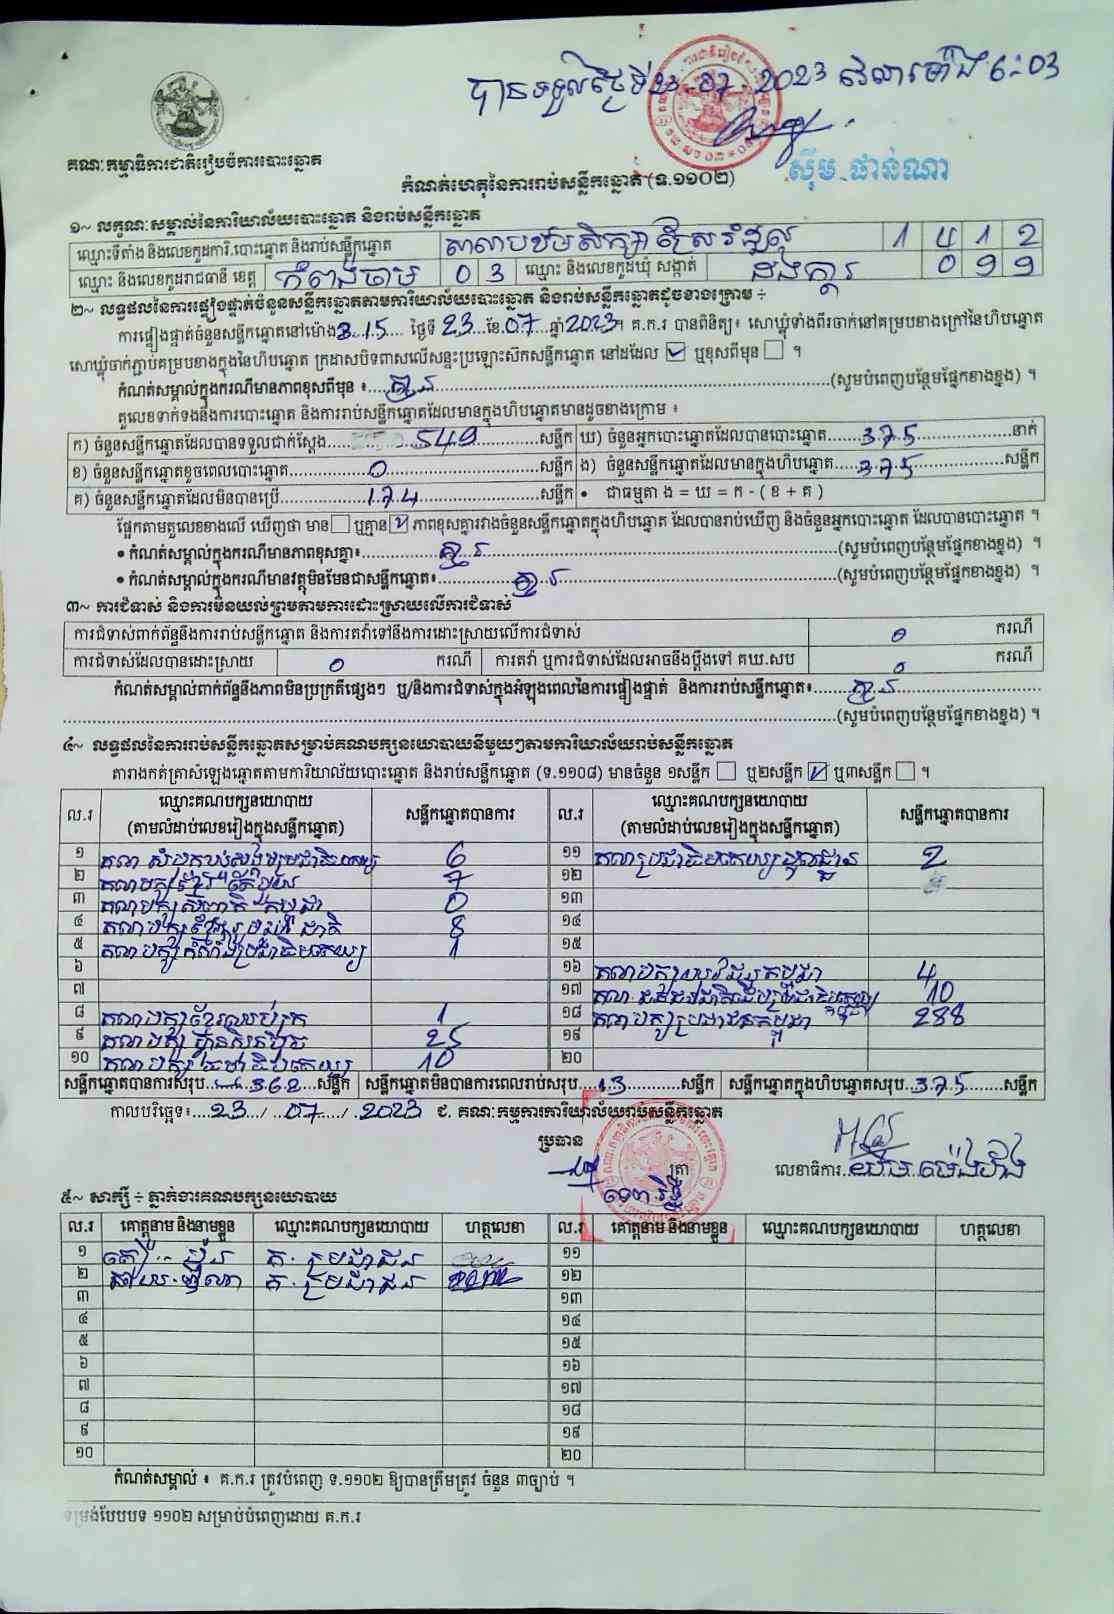 បានទទួលថ្ងៃទី23-07-2023 វេលាម៉ោង 6:03
គណៈកម្មាធិការជាតិរៀបចំការបោះឆ្នោត
ស៊ីម ផាន់ណា
កំណត់ហេតុនៃការរាប់សន្លឹកឆ្នោត (ទ.១១០២)
១~ លក្ខណៈសម្គាល់នៃការិយាល័យបោះឆ្នោត និងរាប់សន្លឹកឆ្នោត
ឈ្មោះទីតាំង និងលេខកូដការិ.បោះឆ្នោត និងរាប់សន្លឹកឆ្នោត 1 4 1 2
ឈ្មោះ និងលេខកូដរាជធានី ខេត្ត កំពង់ចាម 0 3 ឈ្មោះ និងលេខកូដឃុំ សង្កាត់ ដងក្តារ 0 9 9
២~ លទ្ធផលនៃការផ្ទៀងផ្ទាត់ចំនួនសន្លឹកឆ្នោតតាមការិយាល័យបោះឆ្នោត និងរាប់សន្លឹកឆ្នោតដូចខាងក្រោម ÷
ការផ្ទៀងផ្ទាត់ចំនួនសន្លឹកឆ្នោតនៅម៉ោង 3:15 ថ្ងៃទី 23 ខែ 07 ឆ្នាំ 2023។ គ.ក.រ បានពិនិត្យ៖ សោឃ្លុំទាំងពីរចាក់នៅគម្របខាងក្រៅនៃហិបឆ្នោត
សោឃ្លុំចាក់ភ្ជាប់គម្របខាងក្នុងនៃហិបឆ្នោត ក្រដាសបិទពាសលើសន្ទះប្រឡោះស៊កសន្លឹកឆ្នោត នៅដដែល ☑ ឬខុសពីមុន ☐ ។
កំណត់សម្គាល់ក្នុងករណីមានភាពខុសពីមុន ៖ គ្មាន (សូមបំពេញបន្ថែមផ្នែកខាងខ្នង) ។
តួលេខទាក់ទងនឹងការបោះឆ្នោត និងការរាប់សន្លឹកឆ្នោតដែលមានក្នុងហិបឆ្នោតមានដូចខាងក្រោម ៖
ក) ចំនួនសន្លឹកឆ្នោតដែលបានទទួលជាក់ស្តែង 549 សន្លឹក ឃ) ចំនួនអ្នកបោះឆ្នោតដែលបានបោះឆ្នោត 375 នាក់
ខ) ចំនួនសន្លឹកឆ្នោតខូចពេលបោះឆ្នោត 0 សន្លឹក ង) ចំនួនសន្លឹកឆ្នោតដែលមានក្នុងហិបឆ្នោត 375 សន្លឹក
គ) ចំនួនសន្លឹកឆ្នោតដែលមិនបានប្រើ 174 សន្លឹក • ជាធម្មតា ង = ឃ = ក - ( ខ + គ )
ផ្អែកតាមតួលេខខាងលើ ឃើញថា មាន ☐ ឬគ្មាន ☑ ភាពខុសគ្នារវាងចំនួនសន្លឹកឆ្នោតក្នុងហិបឆ្នោត ដែលបានរាប់ឃើញ និងចំនួនអ្នកបោះឆ្នោត ដែលបានបោះឆ្នោត ។
• កំណត់សម្គាល់ក្នុងករណីមានភាពខុសគ្នា៖ គ្មាន (សូមបំពេញបន្ថែមផ្នែកខាងខ្នង) ។
• កំណត់សម្គាល់ក្នុងករណីមានវត្ថុមិនមែនជាសន្លឹកឆ្នោត៖ គ្មាន (សូមបំពេញបន្ថែមផ្នែកខាងខ្នង) ។
៣~ ការជំទាស់ និងការមិនយល់ព្រមតាមការដោះស្រាយលើការជំទាស់
ការជំទាស់ពាក់ព័ន្ធនឹងការរាប់សន្លឹកឆ្នោត និងការតវ៉ាទៅនឹងការដោះស្រាយលើការជំទាស់ 0 ករណី
ការជំទាស់ដែលបានដោះស្រាយ 0 ករណី ការតវ៉ា ឬការជំទាស់ដែលអាចនឹងប្តឹងទៅ គឃ.សប 0 ករណី
កំណត់សម្គាល់ពាក់ព័ន្ធនឹងភាពមិនប្រក្រតីផ្សេងៗ ឬ/និងការជំទាស់ក្នុងអំឡុងពេលនៃការផ្ទៀងផ្ទាត់ និងការរាប់សន្លឹកឆ្នោត៖ គ្មាន
(សូមបំពេញបន្ថែមផ្នែកខាងខ្នង) ។
៤~ លទ្ធផលនៃការរាប់សន្លឹកឆ្នោតសម្រាប់គណបក្សនយោបាយនីមួយៗតាមការិយាល័យរាប់សន្លឹកឆ្នោត
តារាងកត់ត្រាសំឡេងឆ្នោតតាមការិយាល័យបោះឆ្នោត និងរាប់សន្លឹកឆ្នោត (ទ.១១០៨) មានចំនួន ១សន្លឹក ☐ ឬ២សន្លឹក ☑ ឬ៣សន្លឹក ☐ ។
ល.រ ឈ្មោះគណបក្សនយោបាយ (តាមលំដាប់លេខរៀងក្នុងសន្លឹកឆ្នោត) សន្លឹកឆ្នោតបានការ ល.រ ឈ្មោះគណបក្សនយោបាយ (តាមលំដាប់លេខរៀងក្នុងសន្លឹកឆ្នោត) សន្លឹកឆ្នោតបានការ
១ 6 ១១ គណប្រជាធិបតេយ្យមូលដ្ឋាន 2
២ 7 ១២
៣ 0 ១៣
៤ គណបក្សខ្មែររួបរួមជាតិ 8 ១៤
៥ គណបក្សកម្លាំងប្រជាធិបតេយ្យ 1 ១៥
៦ ១៦ 4
៧ ១៧ 10
៨ 1 ១៨ គណបក្សប្រជាជនកម្ពុជា 288
៩ 25 ១៩
១០ 10 ២០
សន្លឹកឆ្នោតបានការសរុប 362 សន្លឹក សន្លឹកឆ្នោតមិនបានការពេលរាប់សរុប 13 សន្លឹក សន្លឹកឆ្នោតក្នុងហិបឆ្នោតសរុប 375 សន្លឹក
កាលបរិច្ឆេទ៖ 23 / 07 / 2023 ជ. គណៈកម្មការការិយាល័យរាប់សន្លឹកឆ្នោត
ប្រធាន
ត្រា លេខាធិការ
ទេព រិទ្ធី
៥~ សាក្សី ÷ ភ្នាក់ងារគណបក្សនយោបាយ
ល.រ គោត្តនាម និងនាមខ្លួន ឈ្មោះគណបក្សនយោបាយ ហត្ថលេខា ល.រ គោត្តនាម និងនាមខ្លួន ឈ្មោះគណបក្សនយោបាយ ហត្ថលេខា
១ គ.ប្រជាជន ១១
២ គ.ប្រជាជន ១២
៣ ១៣
៤ ១៤
៥ ១៥
៦ ១៦
៧ ១៧
៨ ១៨
៩ ១៩
១០ ២០
កំណត់សម្គាល់ ៖ គ.ក.រ ត្រូវបំពេញ ទ.១១០២ ឱ្យបានត្រឹមត្រូវ ចំនួន ៣ច្បាប់ ។
ទម្រង់បែបបទ ១១០២ សម្រាប់បំពេញដោយ គ.ក.រ